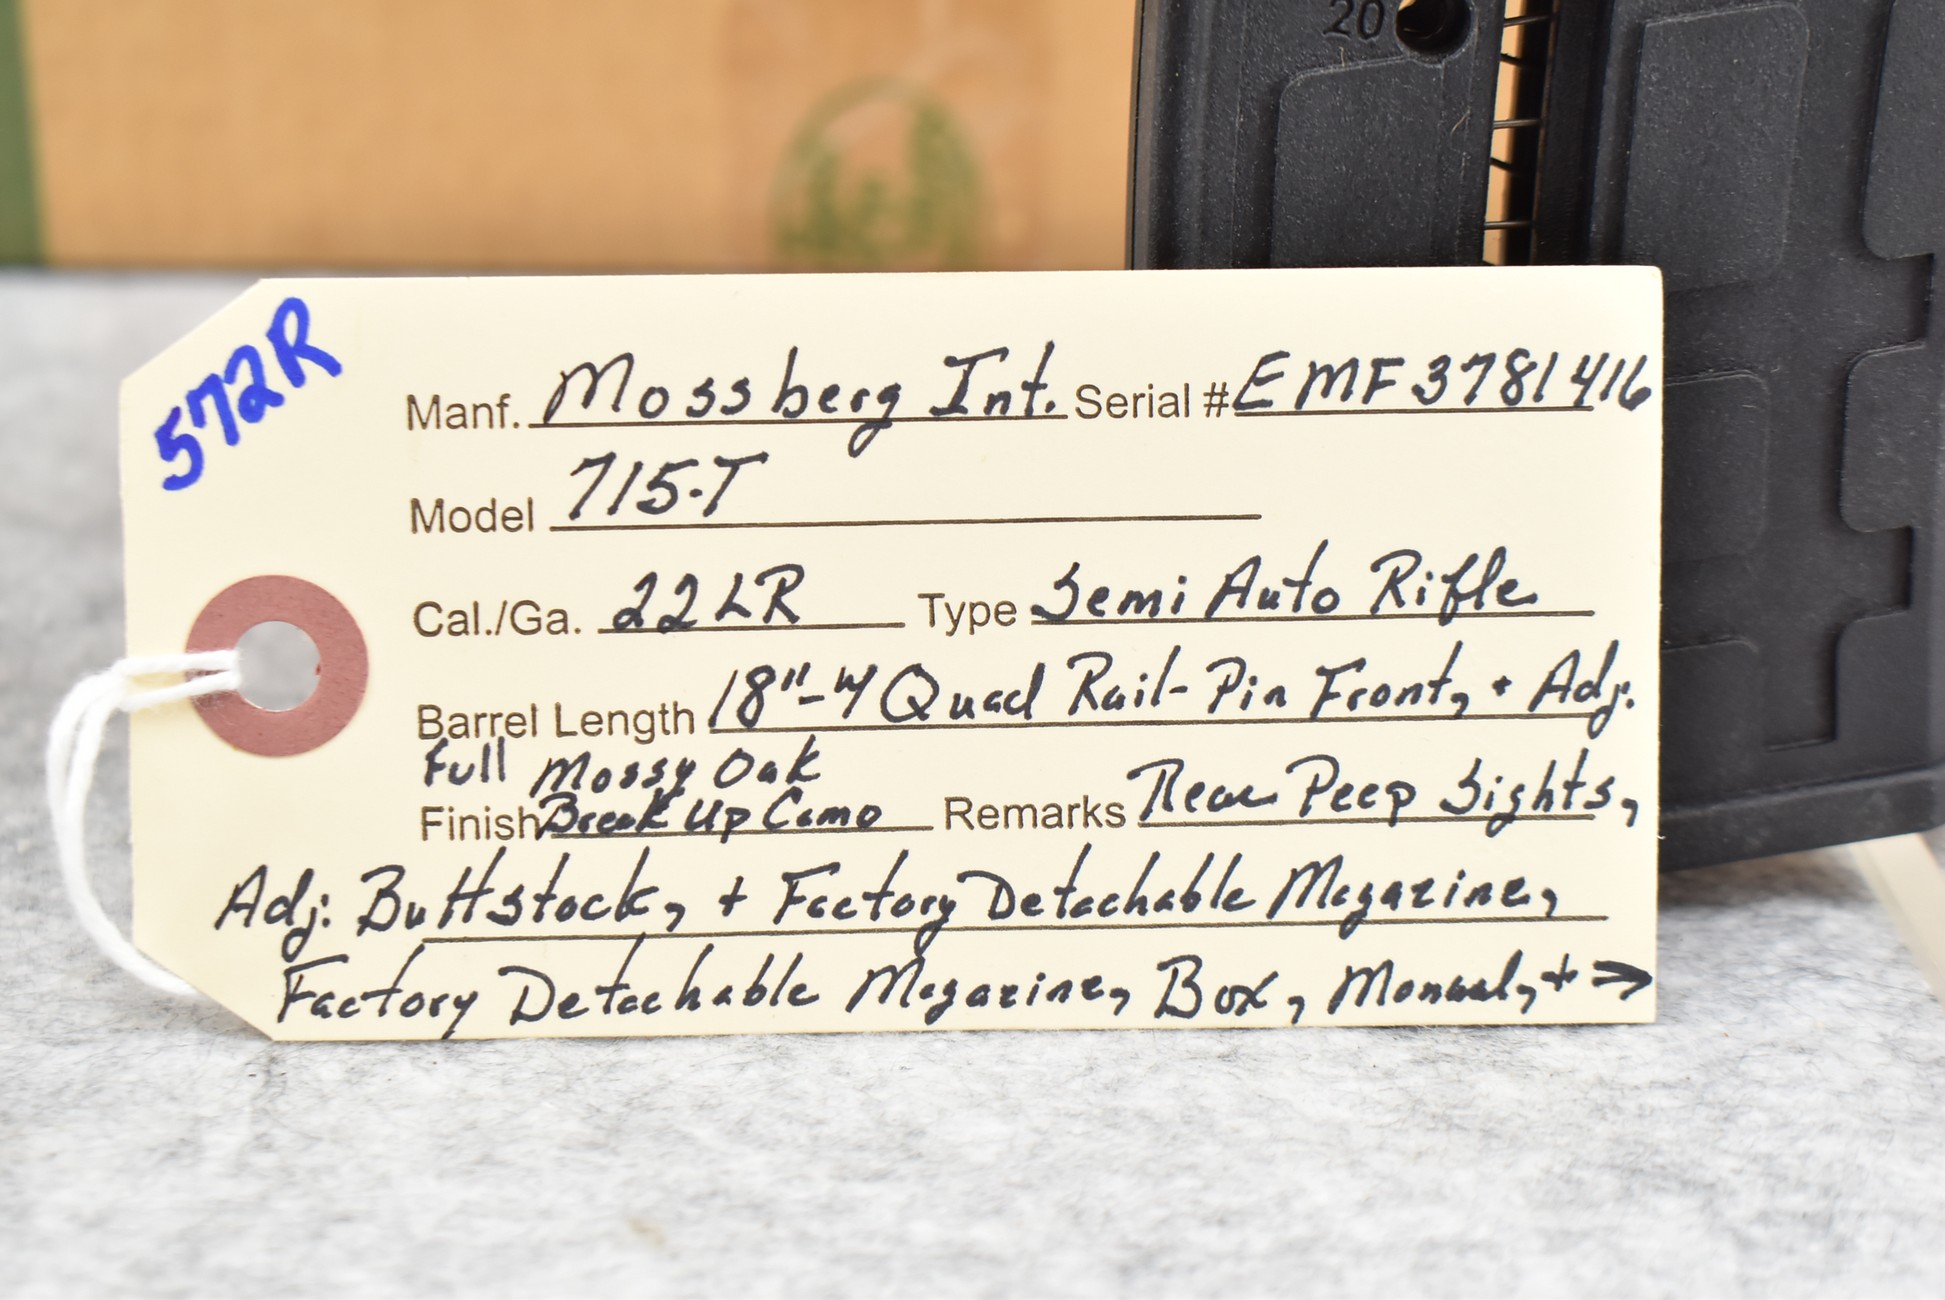 20
572R
Manf. Mossberg Int. Serial # EMF3781416
Model 715-T
Cal./Ga. 22LR Type Semi Auto Rifle
Barrel Length 18"-W/ Quad Rail-Pin Front, + Adj.
Full Mossy Oak
Finish Break Up Camo Remarks Rear Peep Sights,
Adj. Buttstock, + Factory Detachable Magazine,
Factory Detachable Magazine, Box, Manual, + →